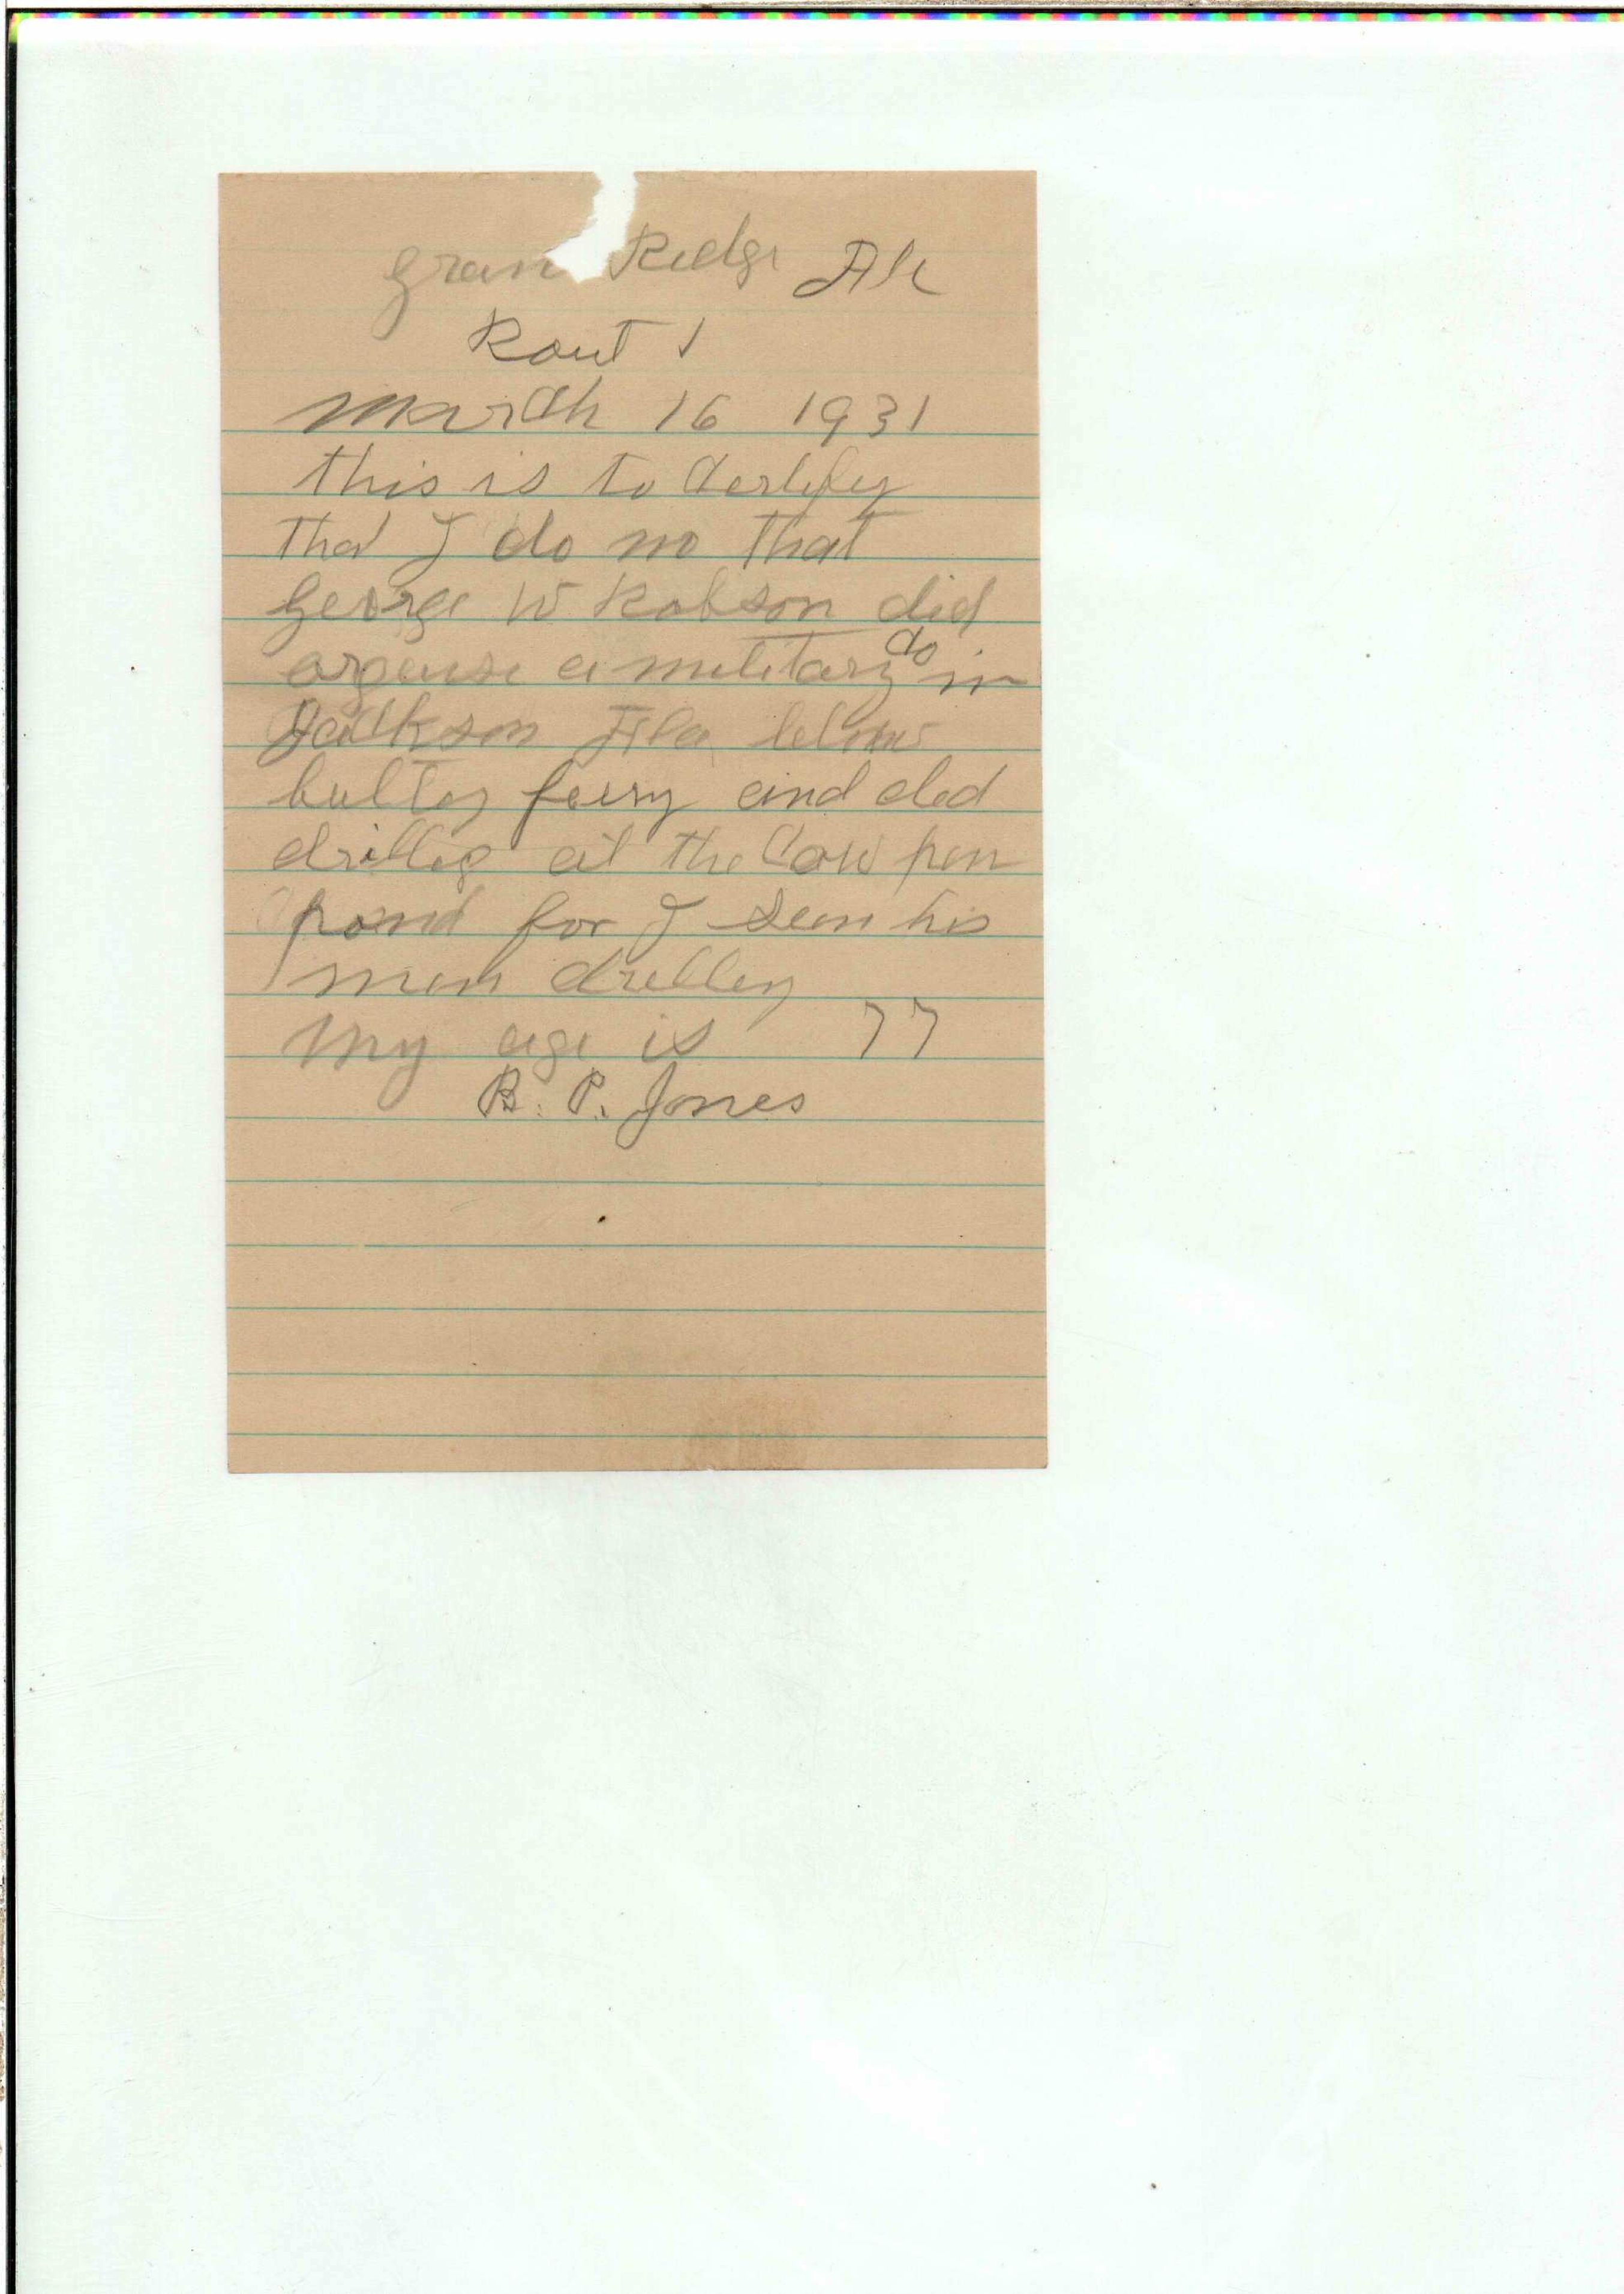 gran Ridge Fla
Rout 1
march 16 1931
this is to certify
that I do no that
George W Robson did
organise a military co in
Jackson Fla below
butley ferry and did
drilleg at the Cow pen
pond for I seen his
men drilleg
my age is 77
B. P. Jones